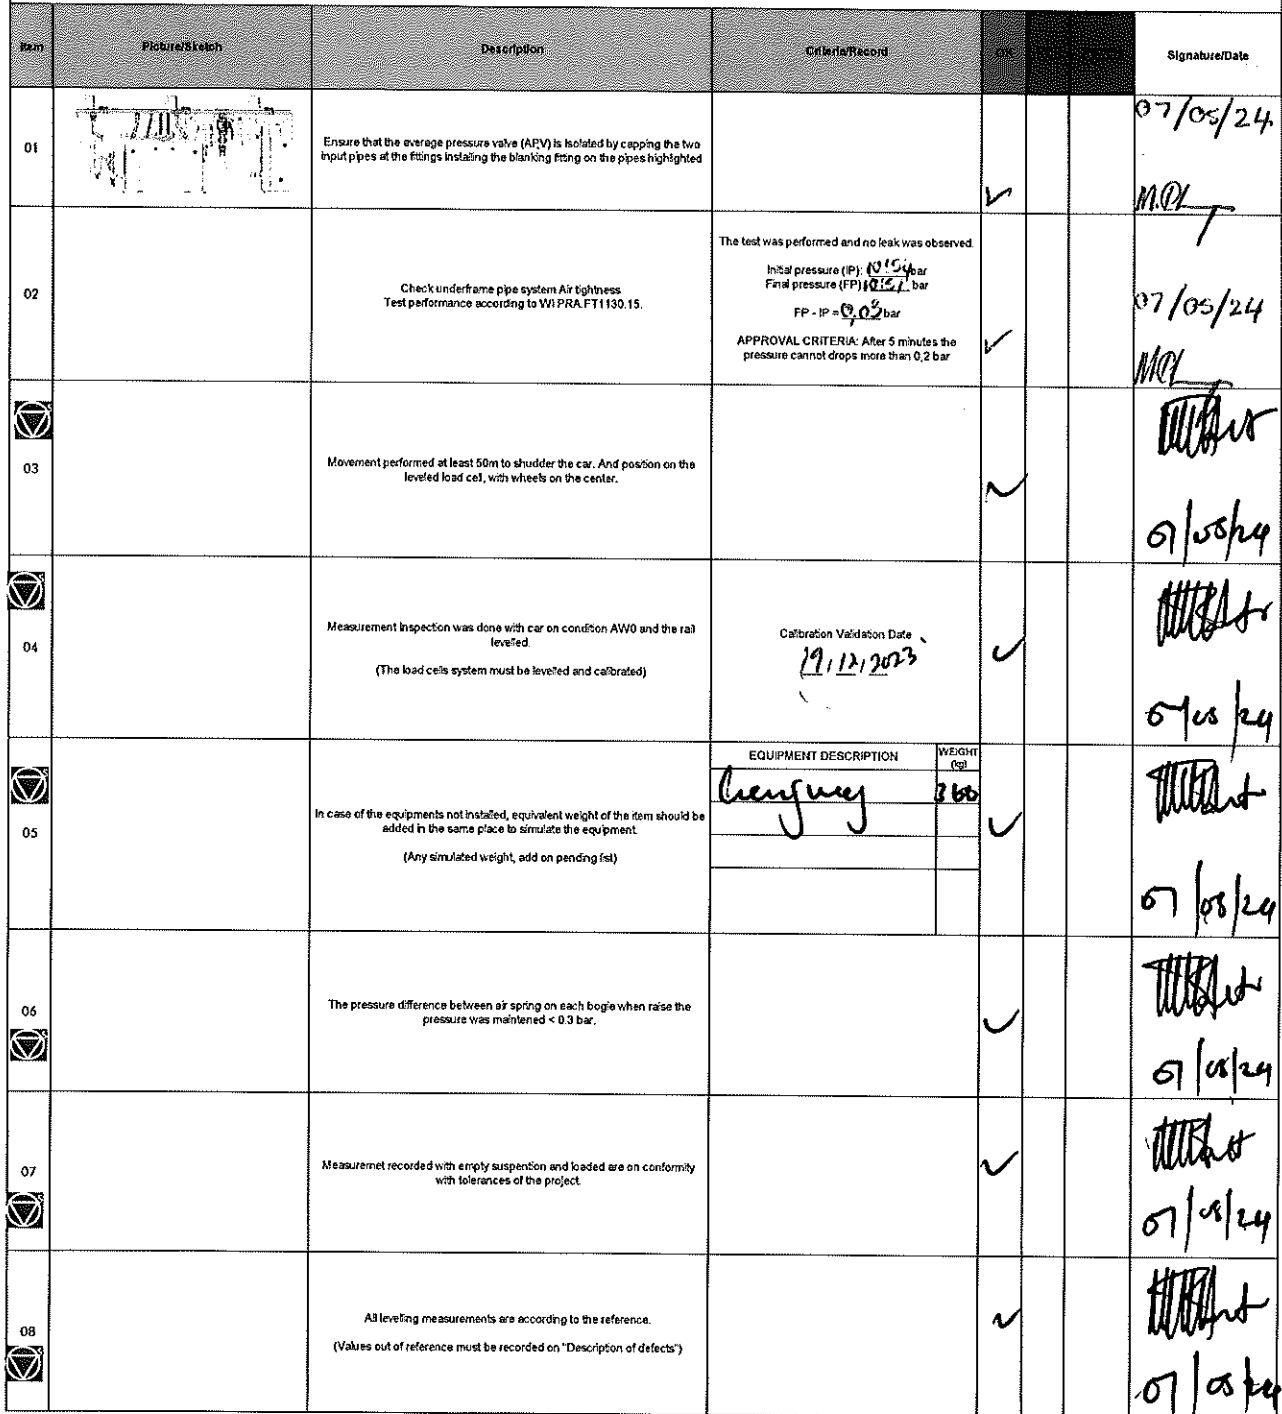 Item
Picture/Sketch
Description
Criteria/Record
OK
Signature/Date
01
Ensure that the average pressure valve (APV) is isolated by capping the two
input pipes at the fittings installing the blanking fitting on the pipes highlighted
07/05/24
02
Check underframe pipe system Air tightness
Test performance according to WI PRA.FT1130.15.
The test was performed and no leak was observed.
Initial pressure (IP): 10,54 bar
Final pressure (FP) 10,51 bar
FP - IP = 0,03 bar
APPROVAL CRITERIA: After 5 minutes the
pressure cannot drops more than 0,2 bar
07/05/24
03
Movement performed at least 50m to shudder the car. And position on the
leveled load cell, with wheels on the center.
04
Measurement Inspection was done with car on condition AW0 and the rail
levelled.
(The load cells system must be levelled and calibrated)
Calibration Validation Date
19/12/2023
05
In case of the equipments not installed, equivalent weight of the item should be
added in the same place to simulate the equipment.
(Any simulated weight, add on pending list)
EQUIPMENT DESCRIPTION
WEIGHT
(kg)
360
06
The pressure difference between air spring on each bogie when raise the
pressure was maintened < 0.3 bar.
07
Measuremet recorded with empty suspention and loaded are on conformity
with tolerances of the project.
08
All levelling measurements are according to the reference.
(Values out of reference must be recorded on "Description of defects")